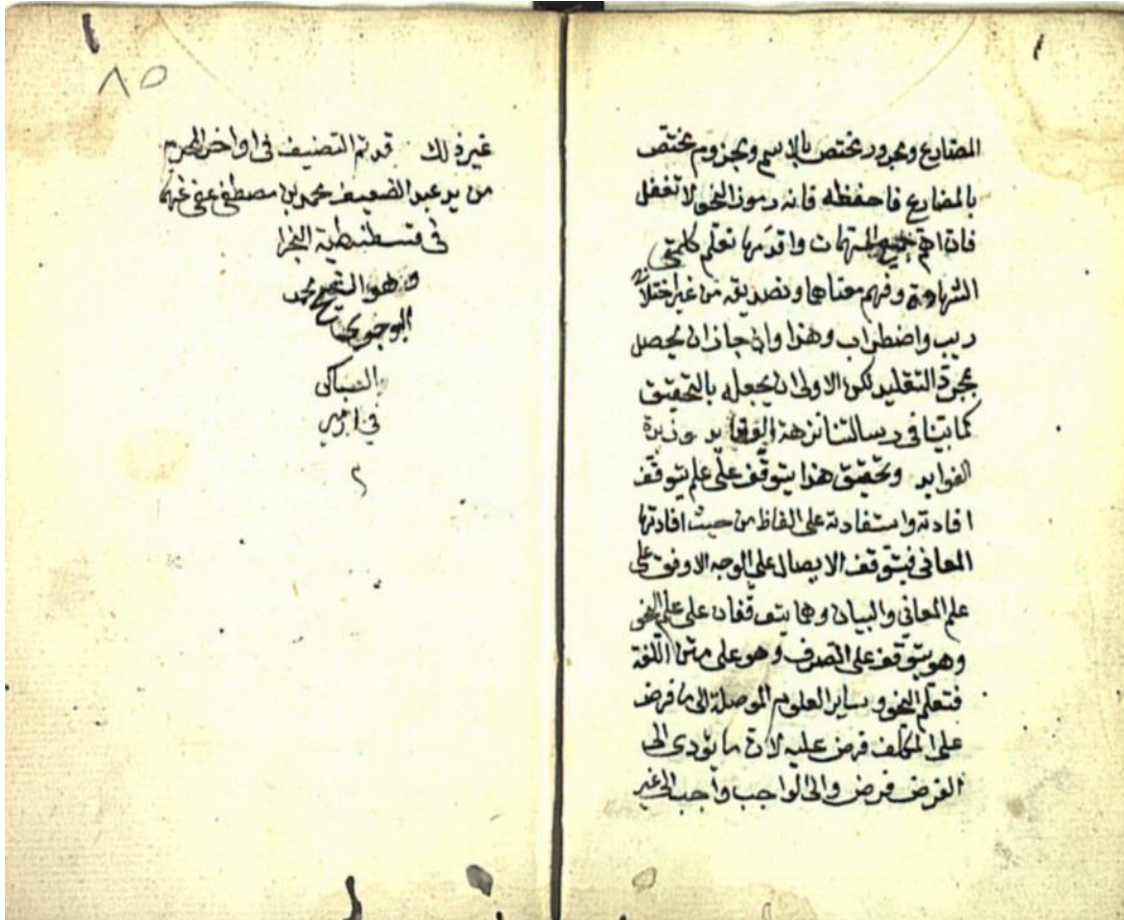 المضارع ومجرور يختص بالاسم ومجزوم يختص
بالمضارع فاحفظه فانه رموز النحو لا تغفل
فان اهم جميع المهمات واقدمها تعلم كلمتي
الشهادة وفهم معناها وتصديقه من غير اختلاف
ريب واضطراب وهذا وان جاز ان يحصل
بمجرد التقليد لكن الاولى ان يجعله بالتحقيق
كما بينا في رسالتنا نزهة وزبدة
الفوايد وتحقيق هذا يتوقف على علم يتوقف
افادته واستفادته على الفاظ من حيث افادتها
المعاني فيتوقف الايصال على الوجه الاوفق على
علم المعاني والبيان وهما يتوقفان على علم النحو
وهو يتوقف على التصرف وهو على متن اللغة
فتعلم النحو وساير العلوم الموصلة الى ما فرض
على المكلف فرض عليه لان ما يؤدى الى
الفرض فرض والى الواجب واجب الى غير
٨٥
غير ذلك قد تم التصنيف في اواخر المحرم
من يد عبد الضعيف محمد بن مصطفى عفى عنهما
في قسطنطية
وهو الشيخ محمد
في